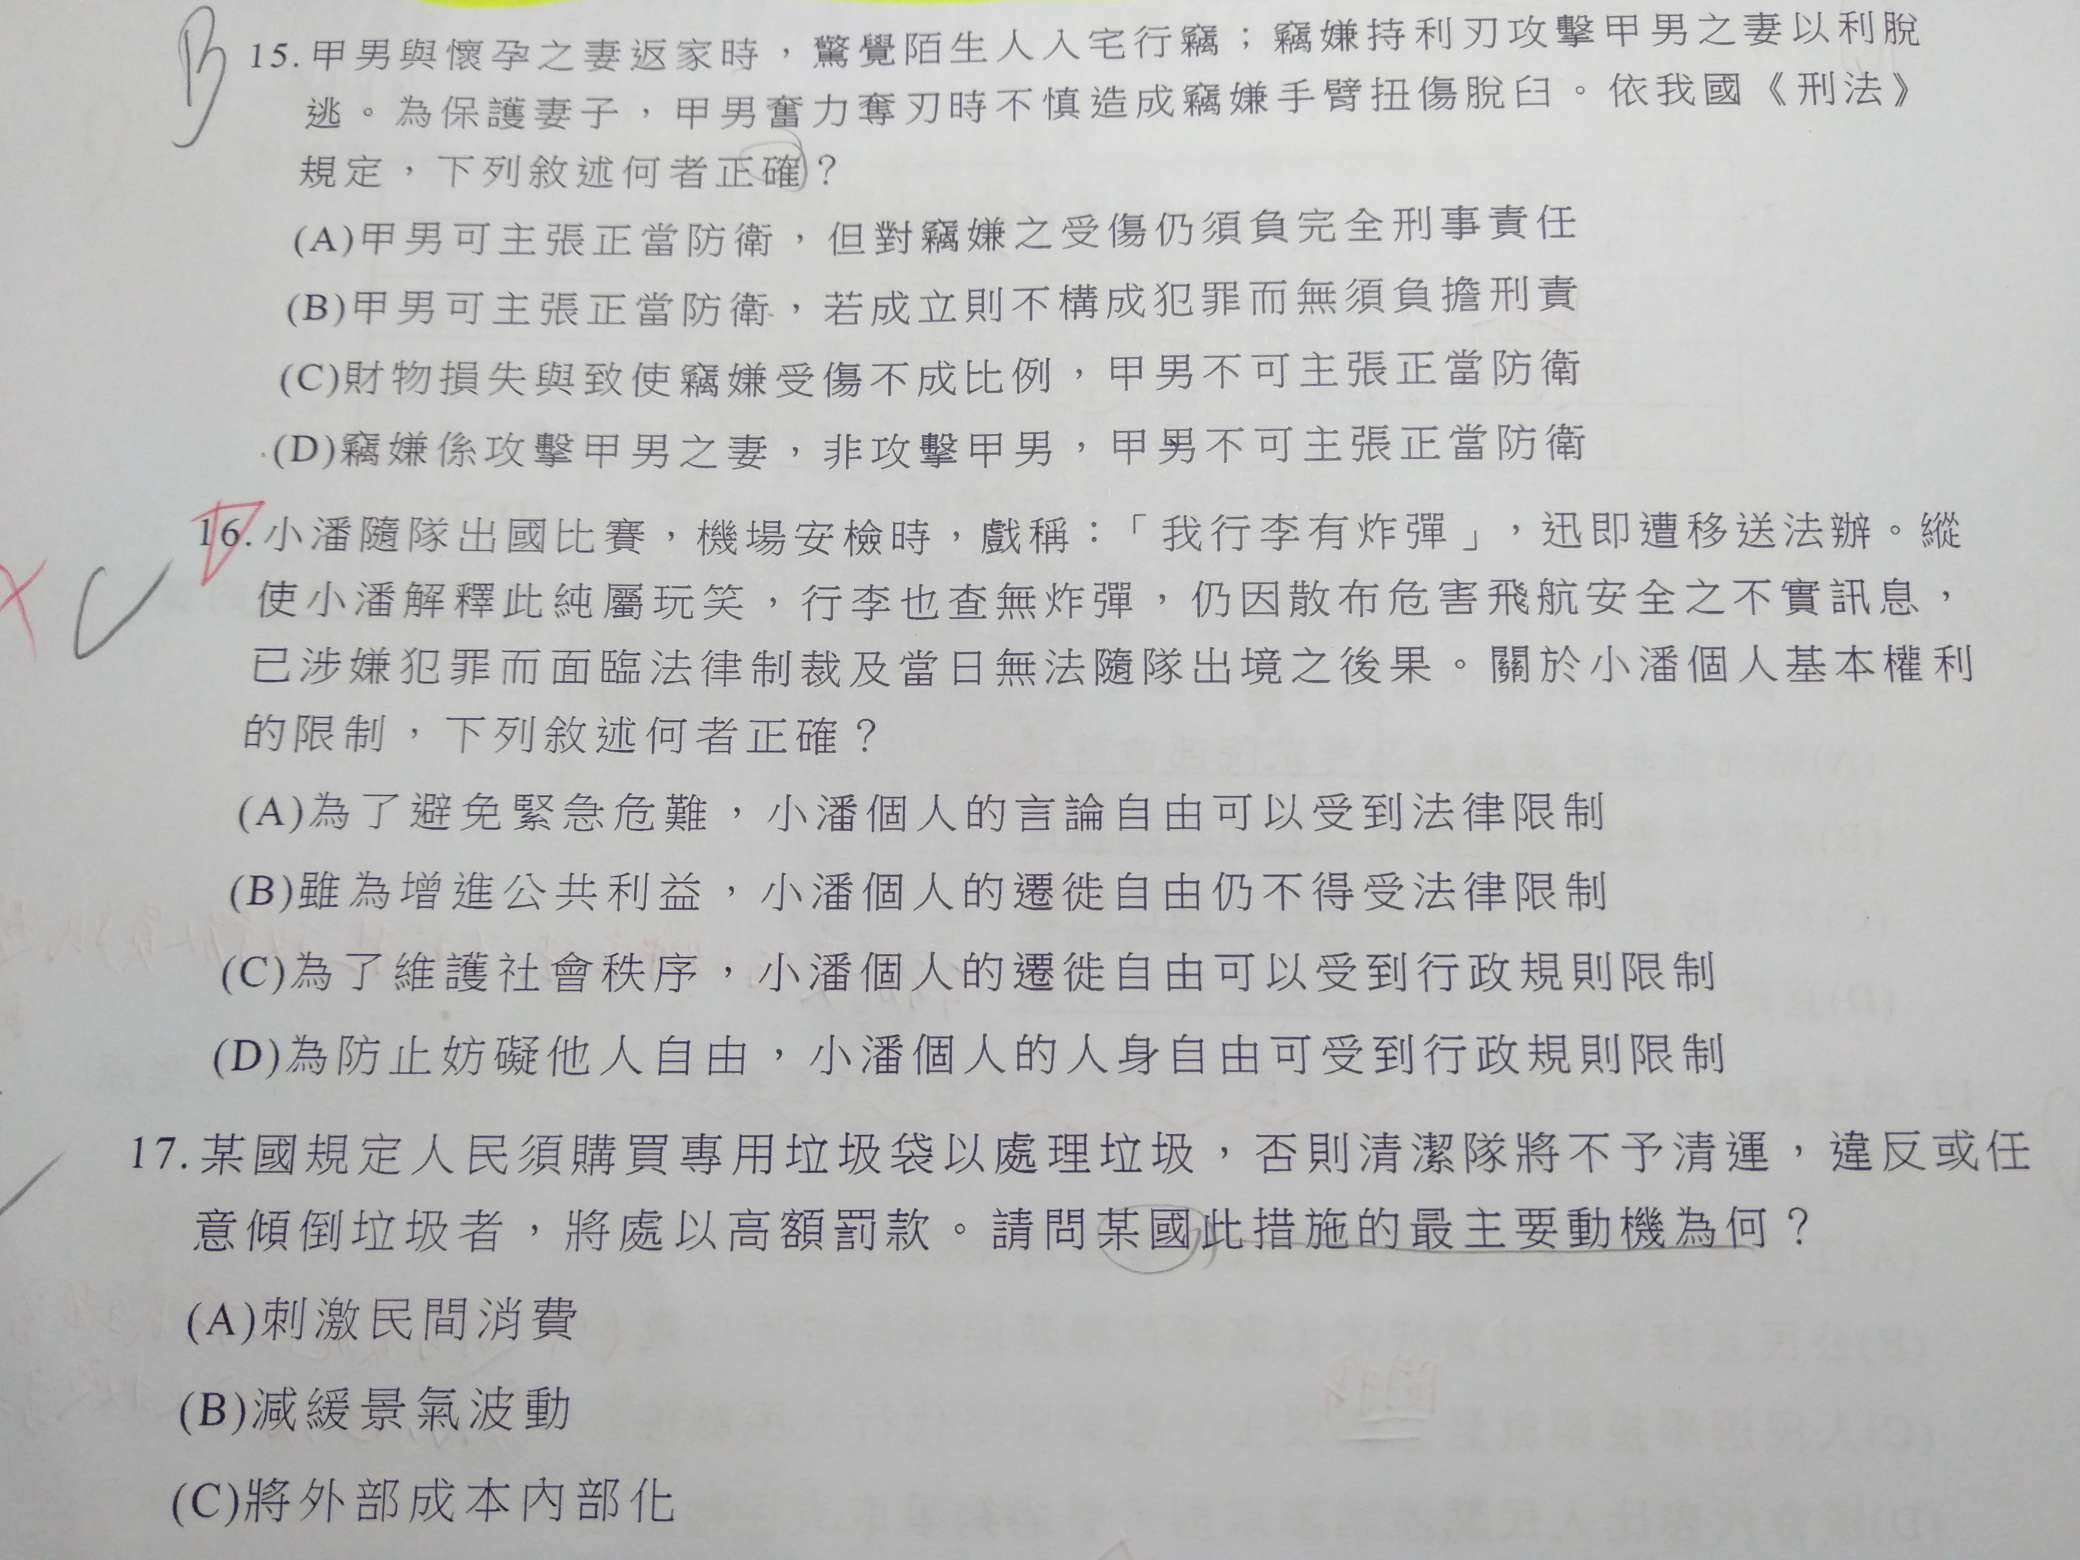 B
15.甲男與懷孕之妻返家時，驚覺陌生人入宅行竊；竊嫌持利刃攻擊甲男之妻以利脫
逃。為保護妻子，甲男奮力奪刃時不慎造成竊嫌手臂扭傷脫臼。依我國《刑法》
規定，下列敘述何者正確？
(A)甲男可主張正當防衛，但對竊嫌之受傷仍須負完全刑事責任
(B)甲男可主張正當防衛，若成立則不構成犯罪而無須負擔刑責
(C)財物損失與致使竊嫌受傷不成比例，甲男不可主張正當防衛
(D)竊嫌係攻擊甲男之妻，非攻擊甲男，甲男不可主張正當防衛
C
16.小潘隨隊出國比賽，機場安檢時，戲稱：「我行李有炸彈」，迅即遭移送法辦。縱
使小潘解釋此純屬玩笑，行李也查無炸彈，仍因散布危害飛航安全之不實訊息，
已涉嫌犯罪而面臨法律制裁及當日無法隨隊出境之後果。關於小潘個人基本權利
的限制，下列敘述何者正確？
(A)為了避免緊急危難，小潘個人的言論自由可以受到法律限制
(B)雖為增進公共利益，小潘個人的遷徙自由仍不得受法律限制
(C)為了維護社會秩序，小潘個人的遷徙自由可以受到行政規則限制
(D)為防止妨礙他人自由，小潘個人的人身自由可受到行政規則限制
17.某國規定人民須購買專用垃圾袋以處理垃圾，否則清潔隊將不予清運，違反或任
意傾倒垃圾者，將處以高額罰款。請問某國此措施的最主要動機為何？
(A)刺激民間消費
(B)減緩景氣波動
(C)將外部成本內部化